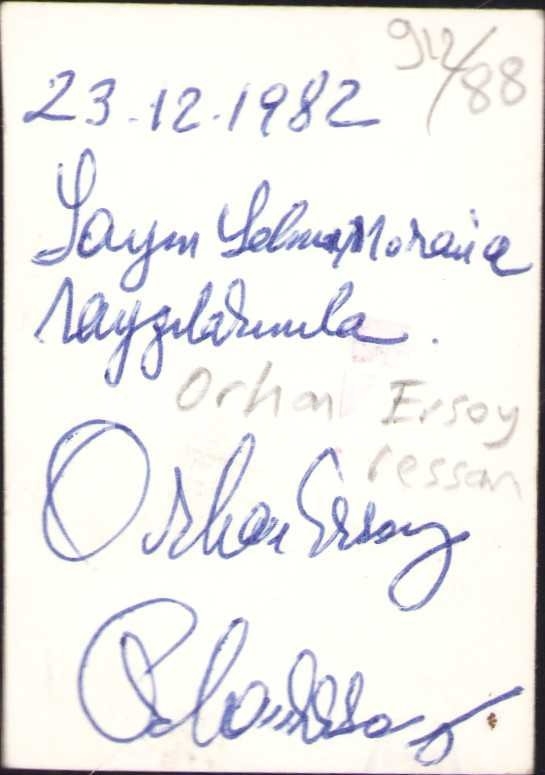 912/88
23.12.1982
Sayın Selma Moralıa
saygılarımla.
Orhan Ersoy
ressam
Orhan Ersoy